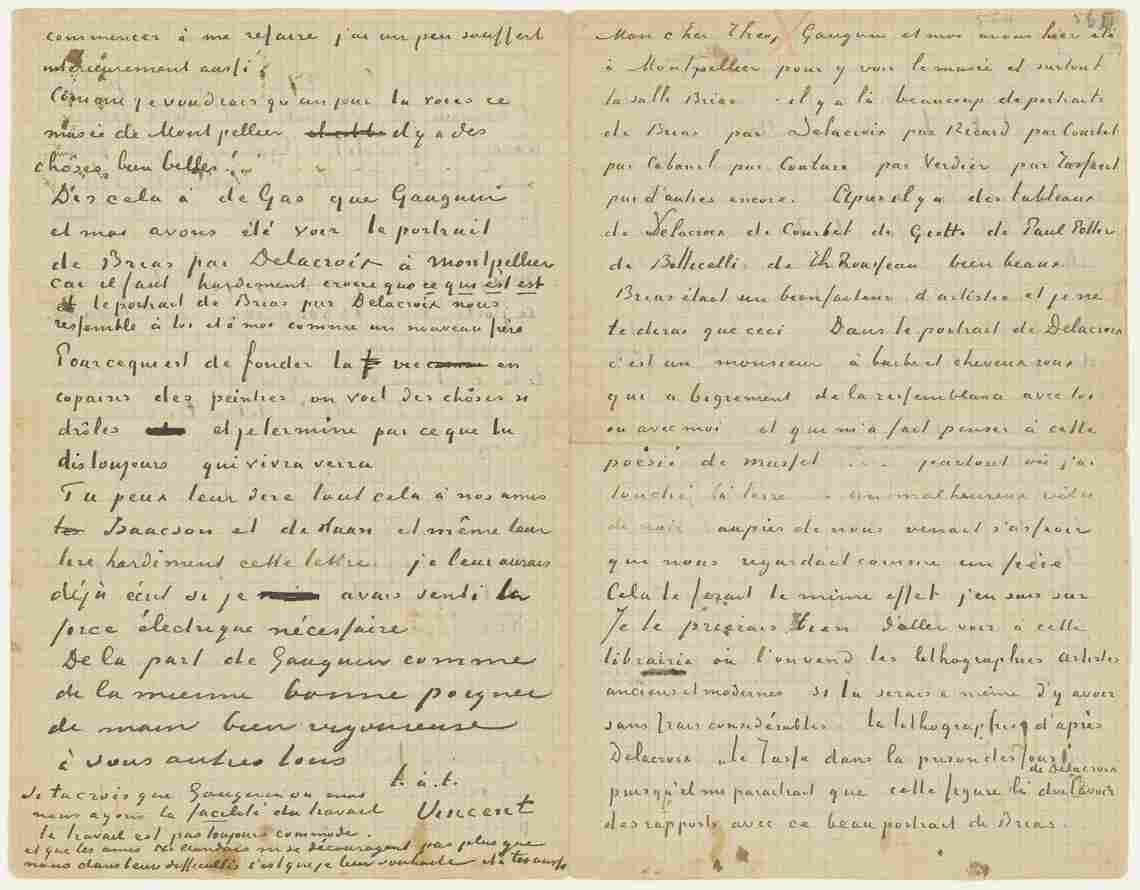 commencer à me refaire j'ai un peu souffert
intérieurement aussi.
Comme je voudrais qu'un jour tu voies ce
musée de Montpellier il y a des
chôses bien belles!
Dis cela à de Gas que Gauguin
et moi avons été voir le portrait
de Brias par Delacroix à Montpellier
car il faut hardiment croire que ce qui est est
et le portrait de Brias par Delacroix nous
ressemble à toi et à moi comme un nouveau frère
Pour ce qui est de fonder la vie en
copains des peintres on voit des chôses si
drôles et je termine par ce que tu
dis toujours qui vivra verra
Tu peux leur dire tout cela à nos amis
Isaäcson et de Haan et même leur
lire hardiment cette lettre je leur aurais
déjà écrit si je avais senti la
force électrique nécessaire.
De la part de Gauguin comme
de la mienne bonne poignée
de main bien vigoureuse
à vous autres tous
t. à. t.
Vincent
Si tu crois que Gauguin ou moi
nous ayons la facilité du travail
le travail est pas toujours commode.
et que les amis Hollandais ne se découragent pas plus que
nous dans leur difficultés c'est que je leur souhaite et à toi aussi
Mon cher Theo, Gauguin et moi avons hier été
à Montpellier pour y voir le musée et surtout
la salle Brias – il y a là beaucoup de portraits
de Brias par Delacroix par Ricard par Courbet
par Cabanel par Couture par Verdier par Tassaert
par d'autres encore. Après il y a des tableaux
de Delacroix de Courbet de Giotto de Paul Potter
de Botticelli de Th Rousseau bien beaux.
Brias était un bienfaiteur d'artistes et je ne
te dirai que ceci Dans le portrait de Delacroix
c'est un monsieur à barbe et cheveux roux
qui a bigrement de la ressemblance avec toi
ou avec moi et qui m'a fait penser à cette
poésie de musset ... partout où j'ai
touché la terre – un malheureux vêtu
de noir auprès de nous venait s'asseoir
qui nous regardait comme un frère
Cela te ferait le même effet j'en suis sur
Je te prierais bien d'aller voir à cette
librairie où l'on vend les lithographies artistes
anciens et modernes si tu serais à même d'y avoir
sans frais considérables la lithographie d'après
Delacroix „le Tasse dans la prison des fous"
puisqu'il me paraitrait que cette figure là de Delacroix doit avoir
des rapports avec ce beau portrait de Brias.